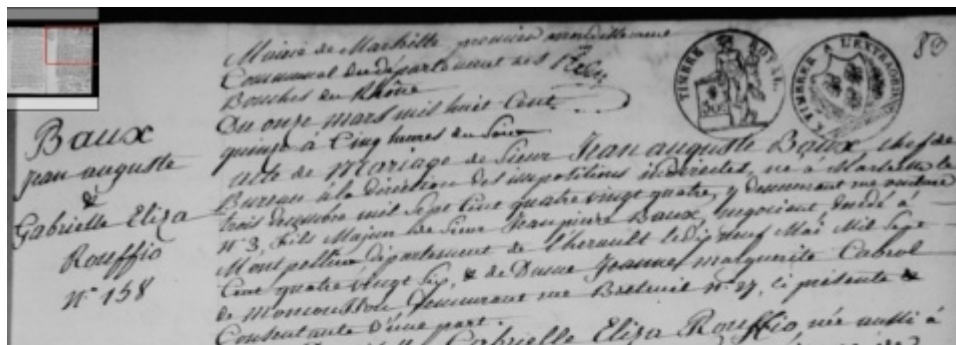 Mairie de Marseille premier arrondissement
Communal du département des
Bouches du Rhône
Du onze mars mil huit Cent
quinze à Cinq heures du Soir
acte de Mariage de Sieur Jean auguste Baux, chef de
Bureau à la direction des impositions indirectes, né à Marseille le
trois décembre mil Sept Cent quatre vingt quatre, y demeurant rue
n° 3, fils Majeur de Sieur Jean pierre Baux, négociant, décédé à
Montpellier département de l'herault le dix neuf Mai Mil Sept
Cent quatre vingt Six, & de Dame Jeanne marguerite Cabrol
de demeurant rue Breteuil n° 27, ci présente &
Consentante d'une part.
Gabrielle Eliza Rouffio, née aussi à
Baux
jean auguste
&
Gabrielle Eliza
Rouffio
N° 158
TIMBRE ROYAL
TIMBRER A L'EXTRAORD